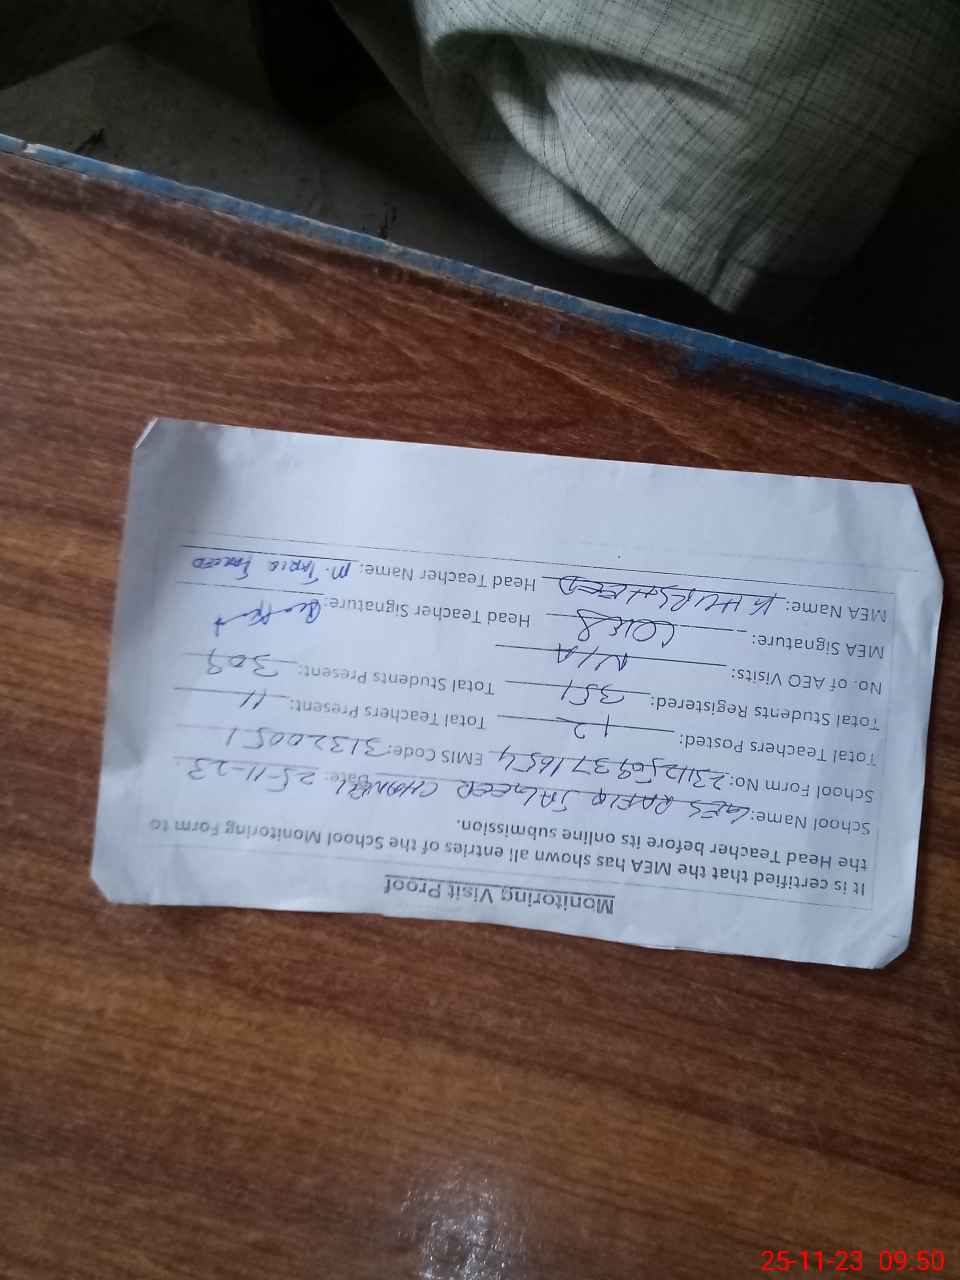 Monitoring Visit Proof
It is certified that the MEA has shown all entries of the School Monitoring Form to
the Head Teacher before its online submission.
School Name: GES RAFIQ JALGEER CHANNEL Date: 25-11-23
School Form No: 231125693771654 EMIS Code: 31320051
Total Teachers Posted: 12 Total Teachers Present: 11
Total Students Registered: 351 Total Students Present: 309
No. of AEO Visits: N/A
MEA Signature: Head Teacher Signature:
MEA Name: KHURSHEED Head Teacher Name: M. TARIQ FAREED
25-11-23 09:50